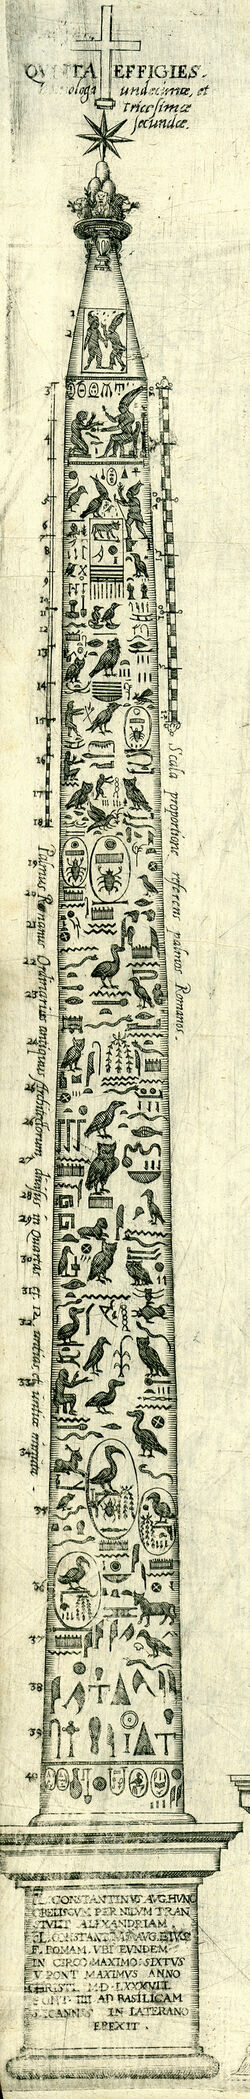 QVINTA EFFIGIES.
undecimæ, et
tricesimæ
secundæ.
1
2
3
4
5
6
7
8
9
10
11
12
13
14
15
16
17
18
19
20
21
22
23
24
25
26
27
28
29
30
31
32
33
34
35
36
37
38
39
40
Scala proportione referens palmos Romanos.
Palmus Romanus Ordinarius antiquus Architectorum divisus in Quartas et
FL. CONSTANTINVS AVG. HVNC
OBELISCVM PER NILVM TRAN
STVLIT ALEXANDRIAM
FL. CONSTANTIVS AVG. EIVS
F. ROMAM. VBI EVNDEM
IN CIRCO MAXIMO SIXTVS
V PONT MAXIMVS ANNO
CHRISTI. M. D. LXXXVIII
PONT. IIII AD BASILICAM
S. IOANNIS IN LATERANO
EREXIT.